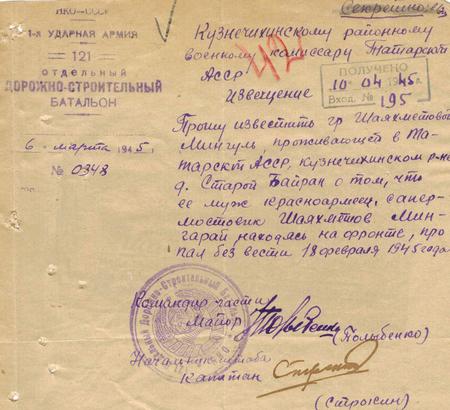 Секретно
НКО-СССР
1-я УДАРНАЯ АРМИЯ
121
ОТДЕЛЬНЫЙ
ДОРОЖНО-СТРОИТЕЛЬНЫЙ
БАТАЛЬОН
6 марта 1945 г
№ 0348
Кузнечихинскому районному
военному комиссару Татарской
Асср
42
ПОЛУЧЕНО
10 04 1945 г.
Вход. № 195
Извещение
Прошу известить гр Шаяхметовой
Мингуль, проживающей в Та-
тарской Асср, кузнечихинском р-не
д. Старой Байран о том, что
ее муж красноармеец, сапер-
мостовик Шаяхметов Мин-
гарай находясь на фронте, про
пал без вести 18 февраля 1945 года
Командир части
Майор
(Полыбенко)
Начальник штаба
Капитан
(Строкин)
Дорожно-Строительный